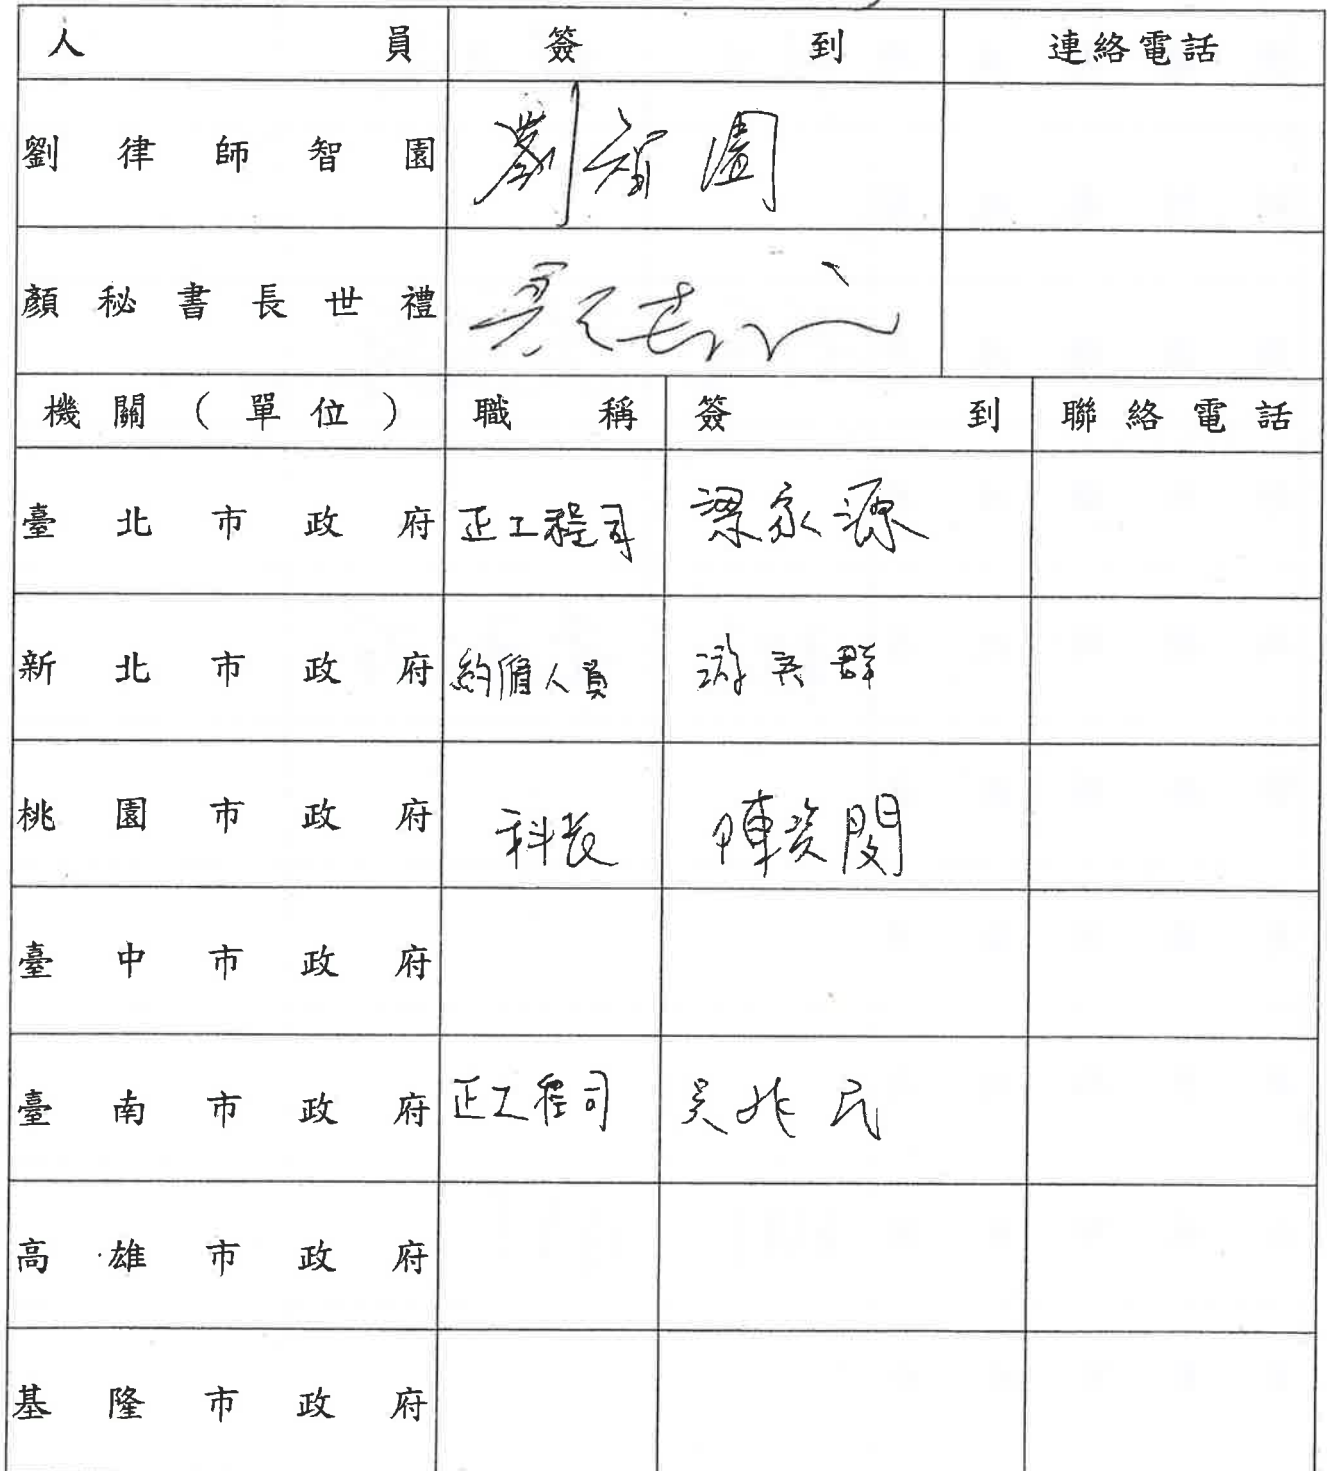 人員 簽到 連絡電話
劉律師智園 劉智園
顏秘書長世禮
機關(單位) 職稱 簽到 聯絡電話
臺北市政府 正工程司 梁家源
新北市政府 約僱人員 游 群
桃園市政府 科長 陳資閔
臺中市政府
臺南市政府 正工程司 吳兆民
高雄市政府
基隆市政府